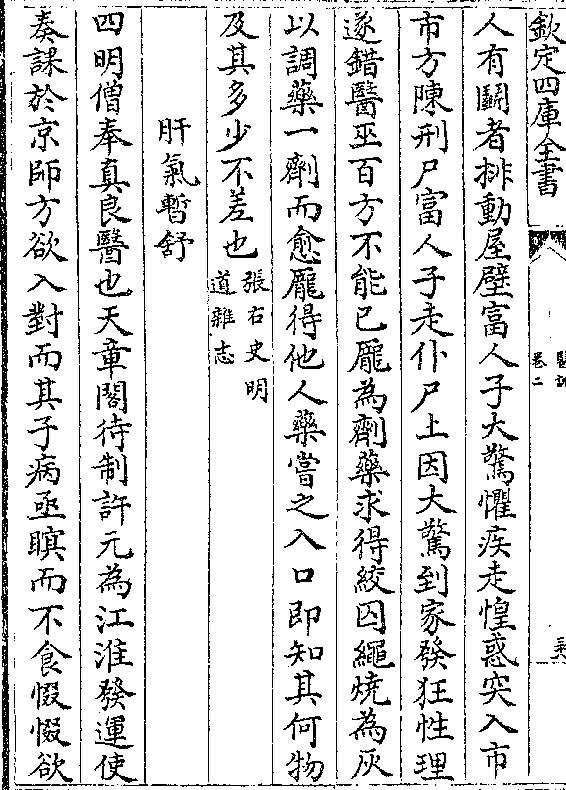 欽定四庫全書
醫說
卷二
人有鬭者排動屋壁富人子大驚懼疾走惶惑突入市
市方陳刑尸富人子走仆尸上因大驚到家發狂性理
遂錯醫巫百方不能已龎為劑藥求得絞囚繩燒為灰
以調藥一劑而愈龎得他人藥嘗之入口即知其何物
及其多少不差也張右史明道雜志
肝氣暫舒
四明僧奉真良醫也天章閣待制許元為江淮發運使
奏課於京師方欲入對而其子病亟瞑而不食惙惙欲